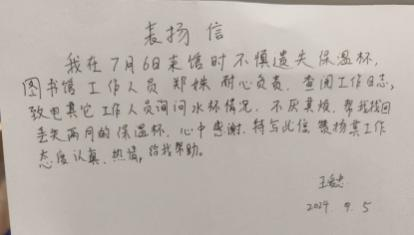 表扬信
我在7月6日来馆时不慎遗失保温杯,
图书馆工作人员郑姝耐心负责,查阅工作日志,
致电其它工作人员询问水杯情况,不厌其烦,帮我找回
丢失两月的保温杯,心中感谢,特写此信赞扬其工作
态度认真、热情,给我帮助。
王 忠
2024. 9. 5